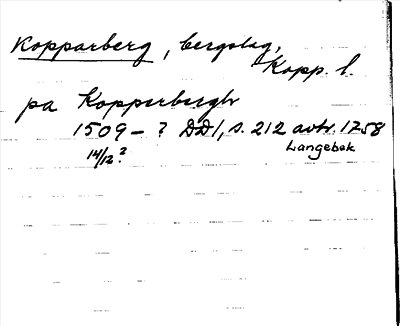 Kopparberg, bergslag,
Kopp. l.
pa Kopperbergh
1509 - ? DD1, s. 212 avtr. 1758
14/12 ? Langebek